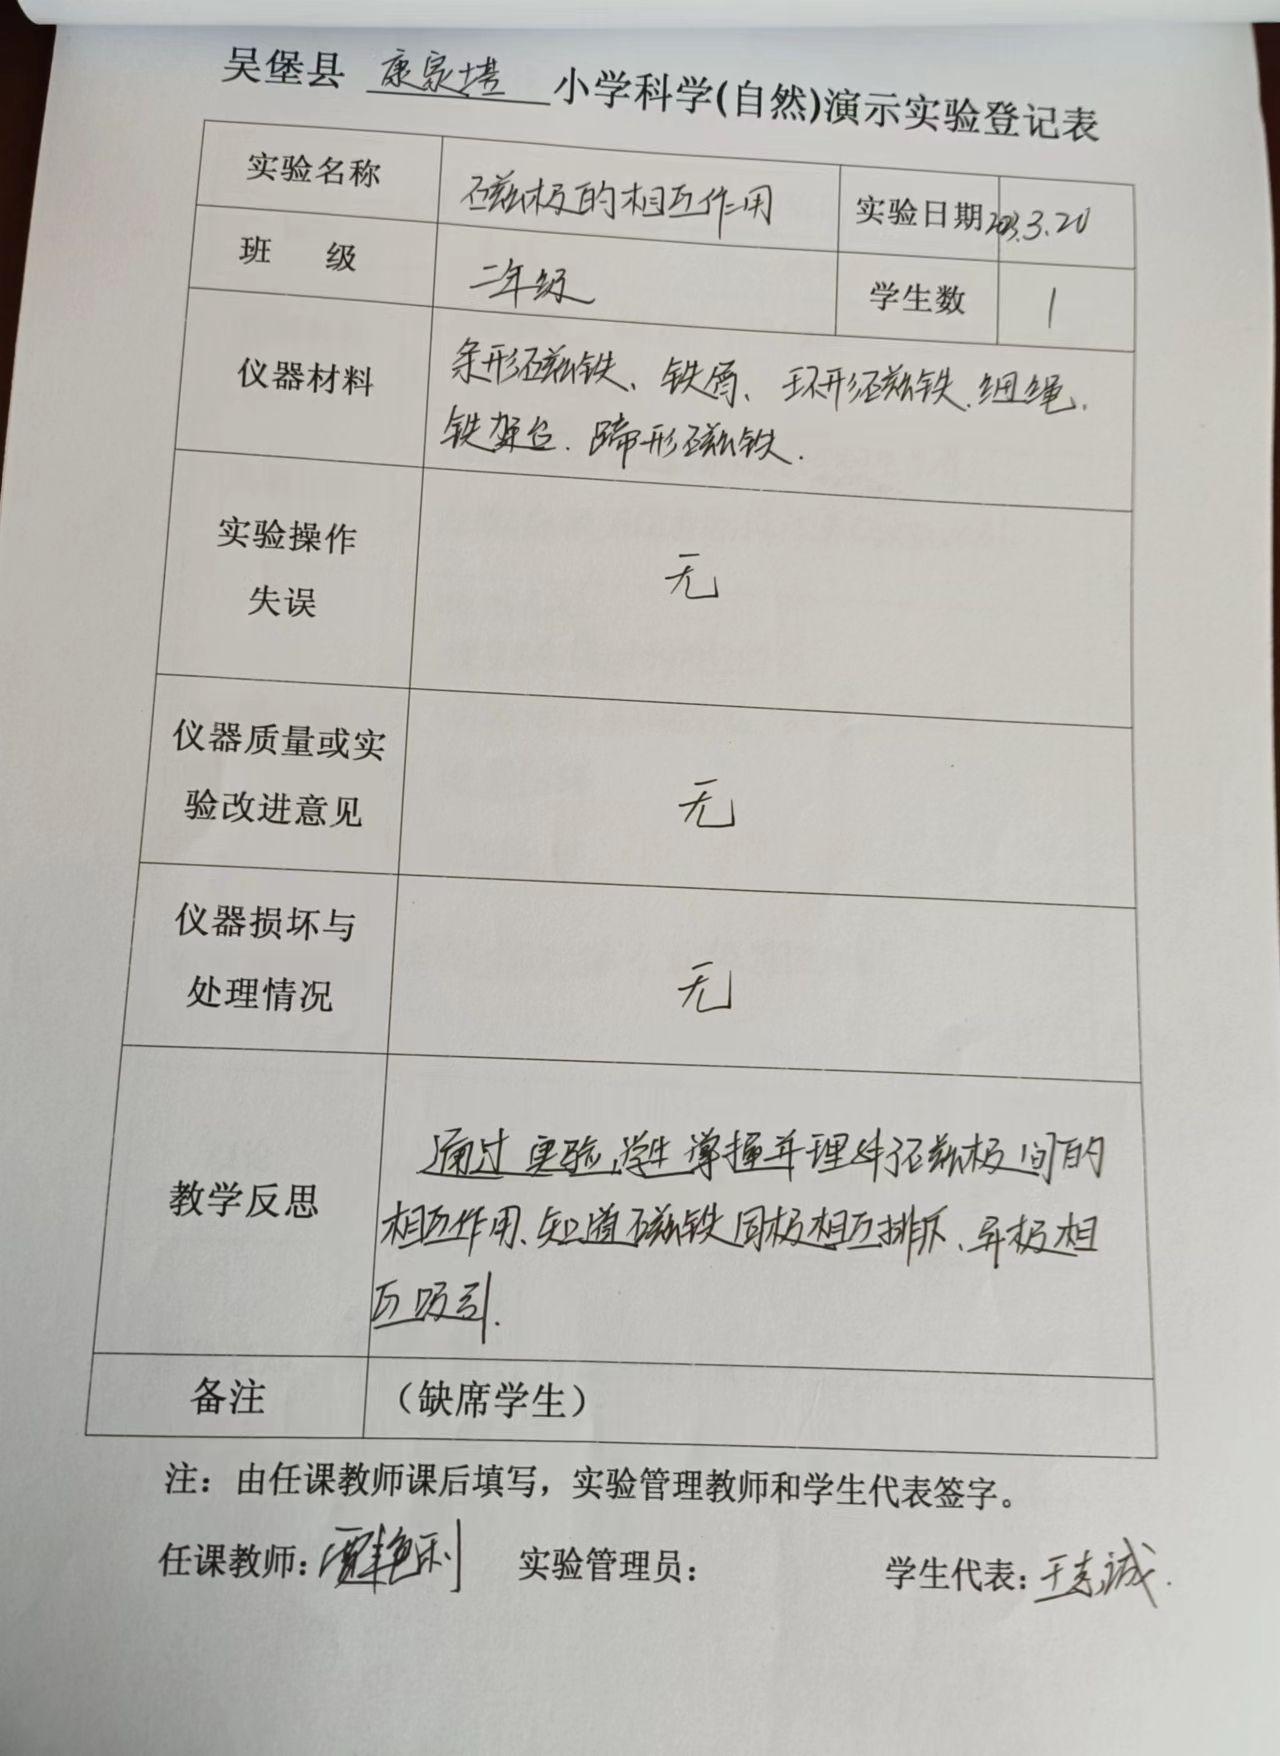 吴堡县 康家塔 小学科学(自然)演示实验登记表
实验名称 磁极的相互作用 实验日期 2023.3.20
班 级 二年级 学生数 1
仪器材料 条形磁铁、铁屑、环形磁铁、细绳、
铁架台、蹄形磁铁.
实验操作
失误
无
仪器质量或实
验改进意见
无
仪器损坏与
处理情况
无
教学反思
通过实验,学生掌握并理解了磁极间的
相互作用、知道磁铁同极相互排斥、异极相
互吸引.
备注 （缺席学生）
注：由任课教师课后填写，实验管理教师和学生代表签字。
任课教师： 实验管理员： 学生代表：